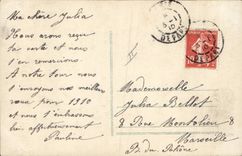 Ma chère Julia
Nous avons reçu
ta carte et nous
t'en remercions.
A notre tour nous
t'envoyons nos meilleurs
vœux pour 1910
et nous t'embrassons
bien affectueusement
Pauline
DEPART
Mademoiselle
Julia Bellot
8 Rue Montolieu 8
Marseille
B. du Rhône